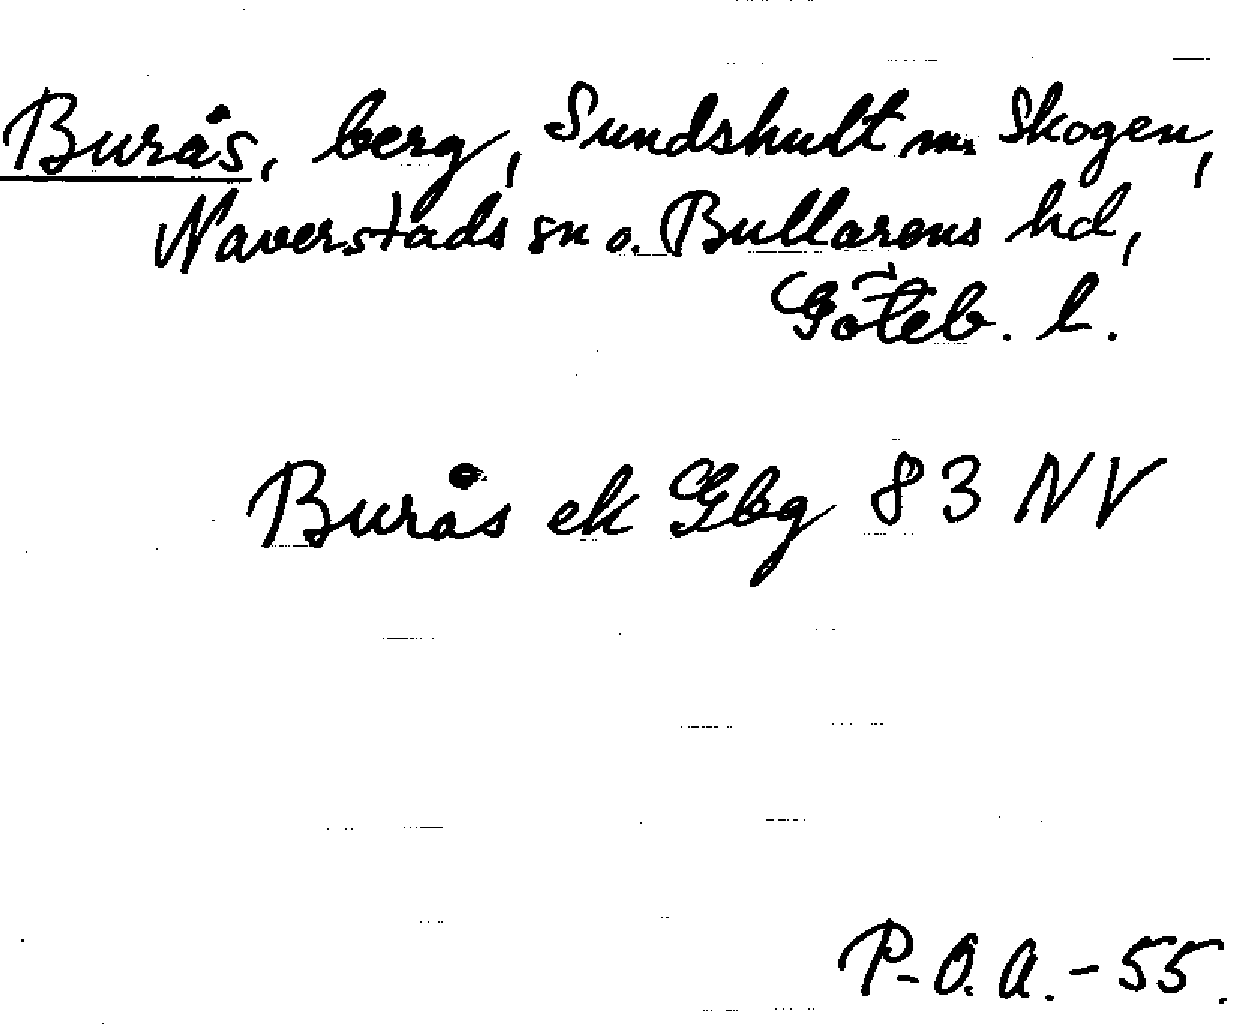 Burås, berg, Sundshult m. Skogen,
Naverstads sn o. Bullarens hd,
Göteb. l.
Burås ek Gbg 83 NV
P-O.A.-55.